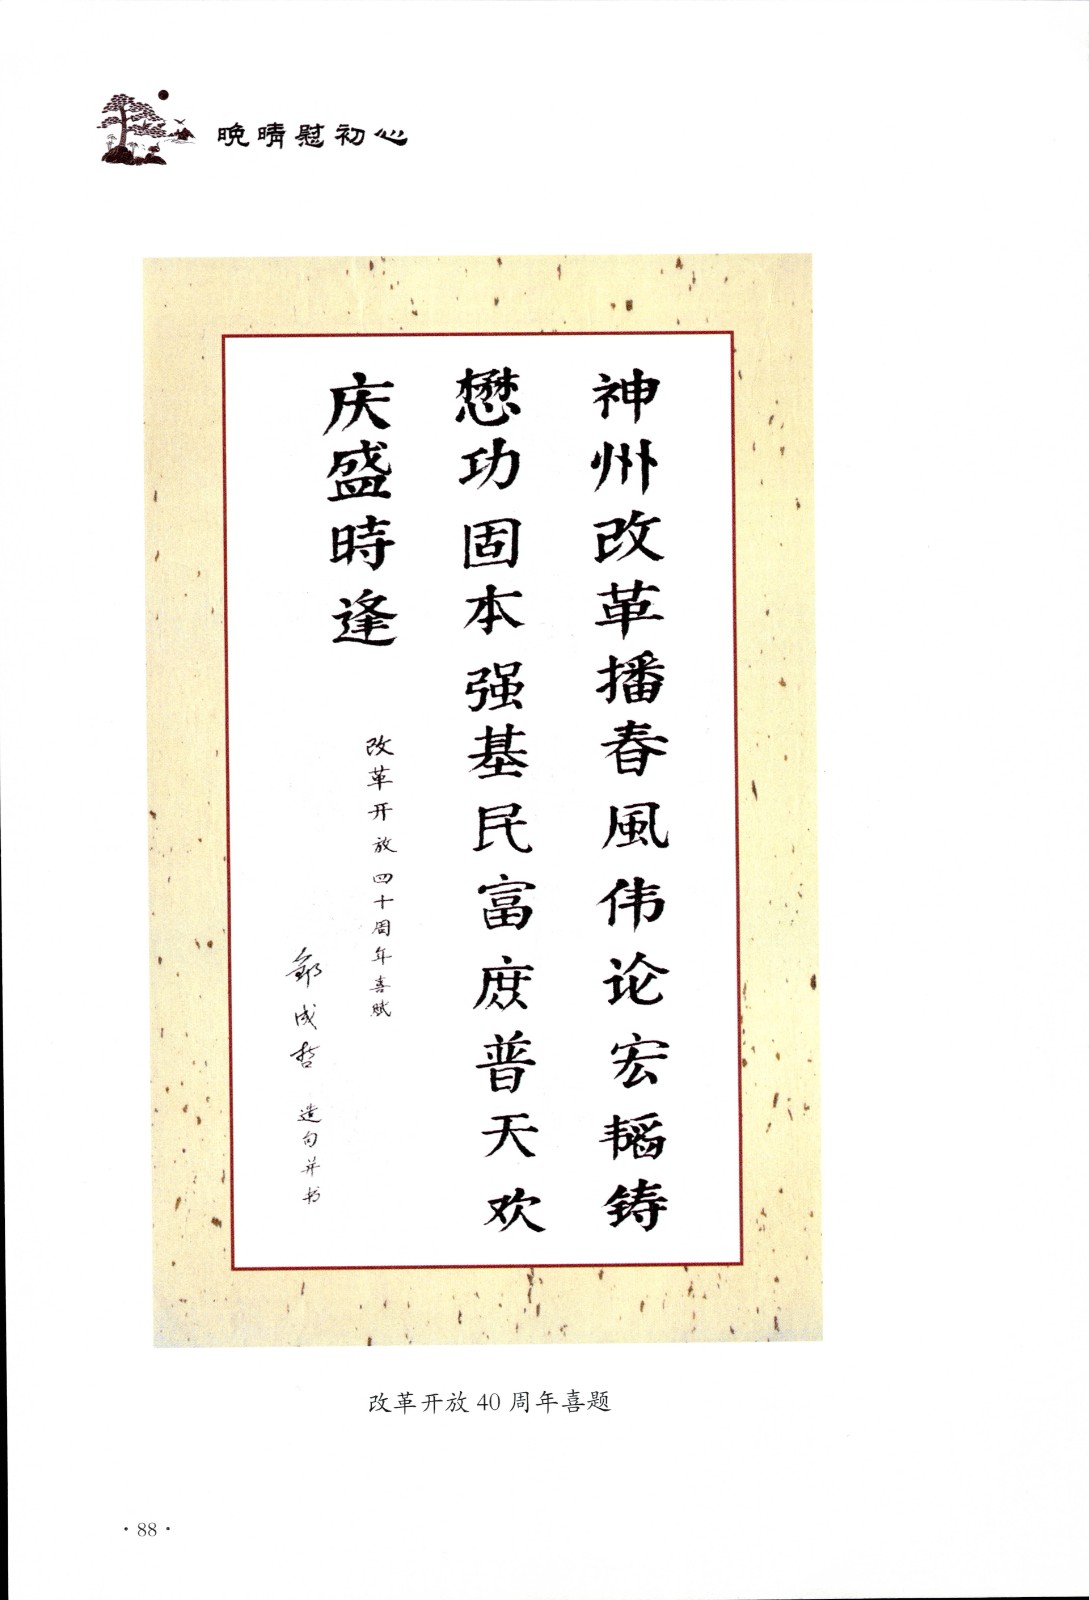 晚晴慰初心
神州改革播春風伟论宏韬铸
懋功固本强基民富庶普天欢
庆盛時逢
改革开放四十周年喜赋
成哲 造句并书
改革开放40周年喜题
·88·